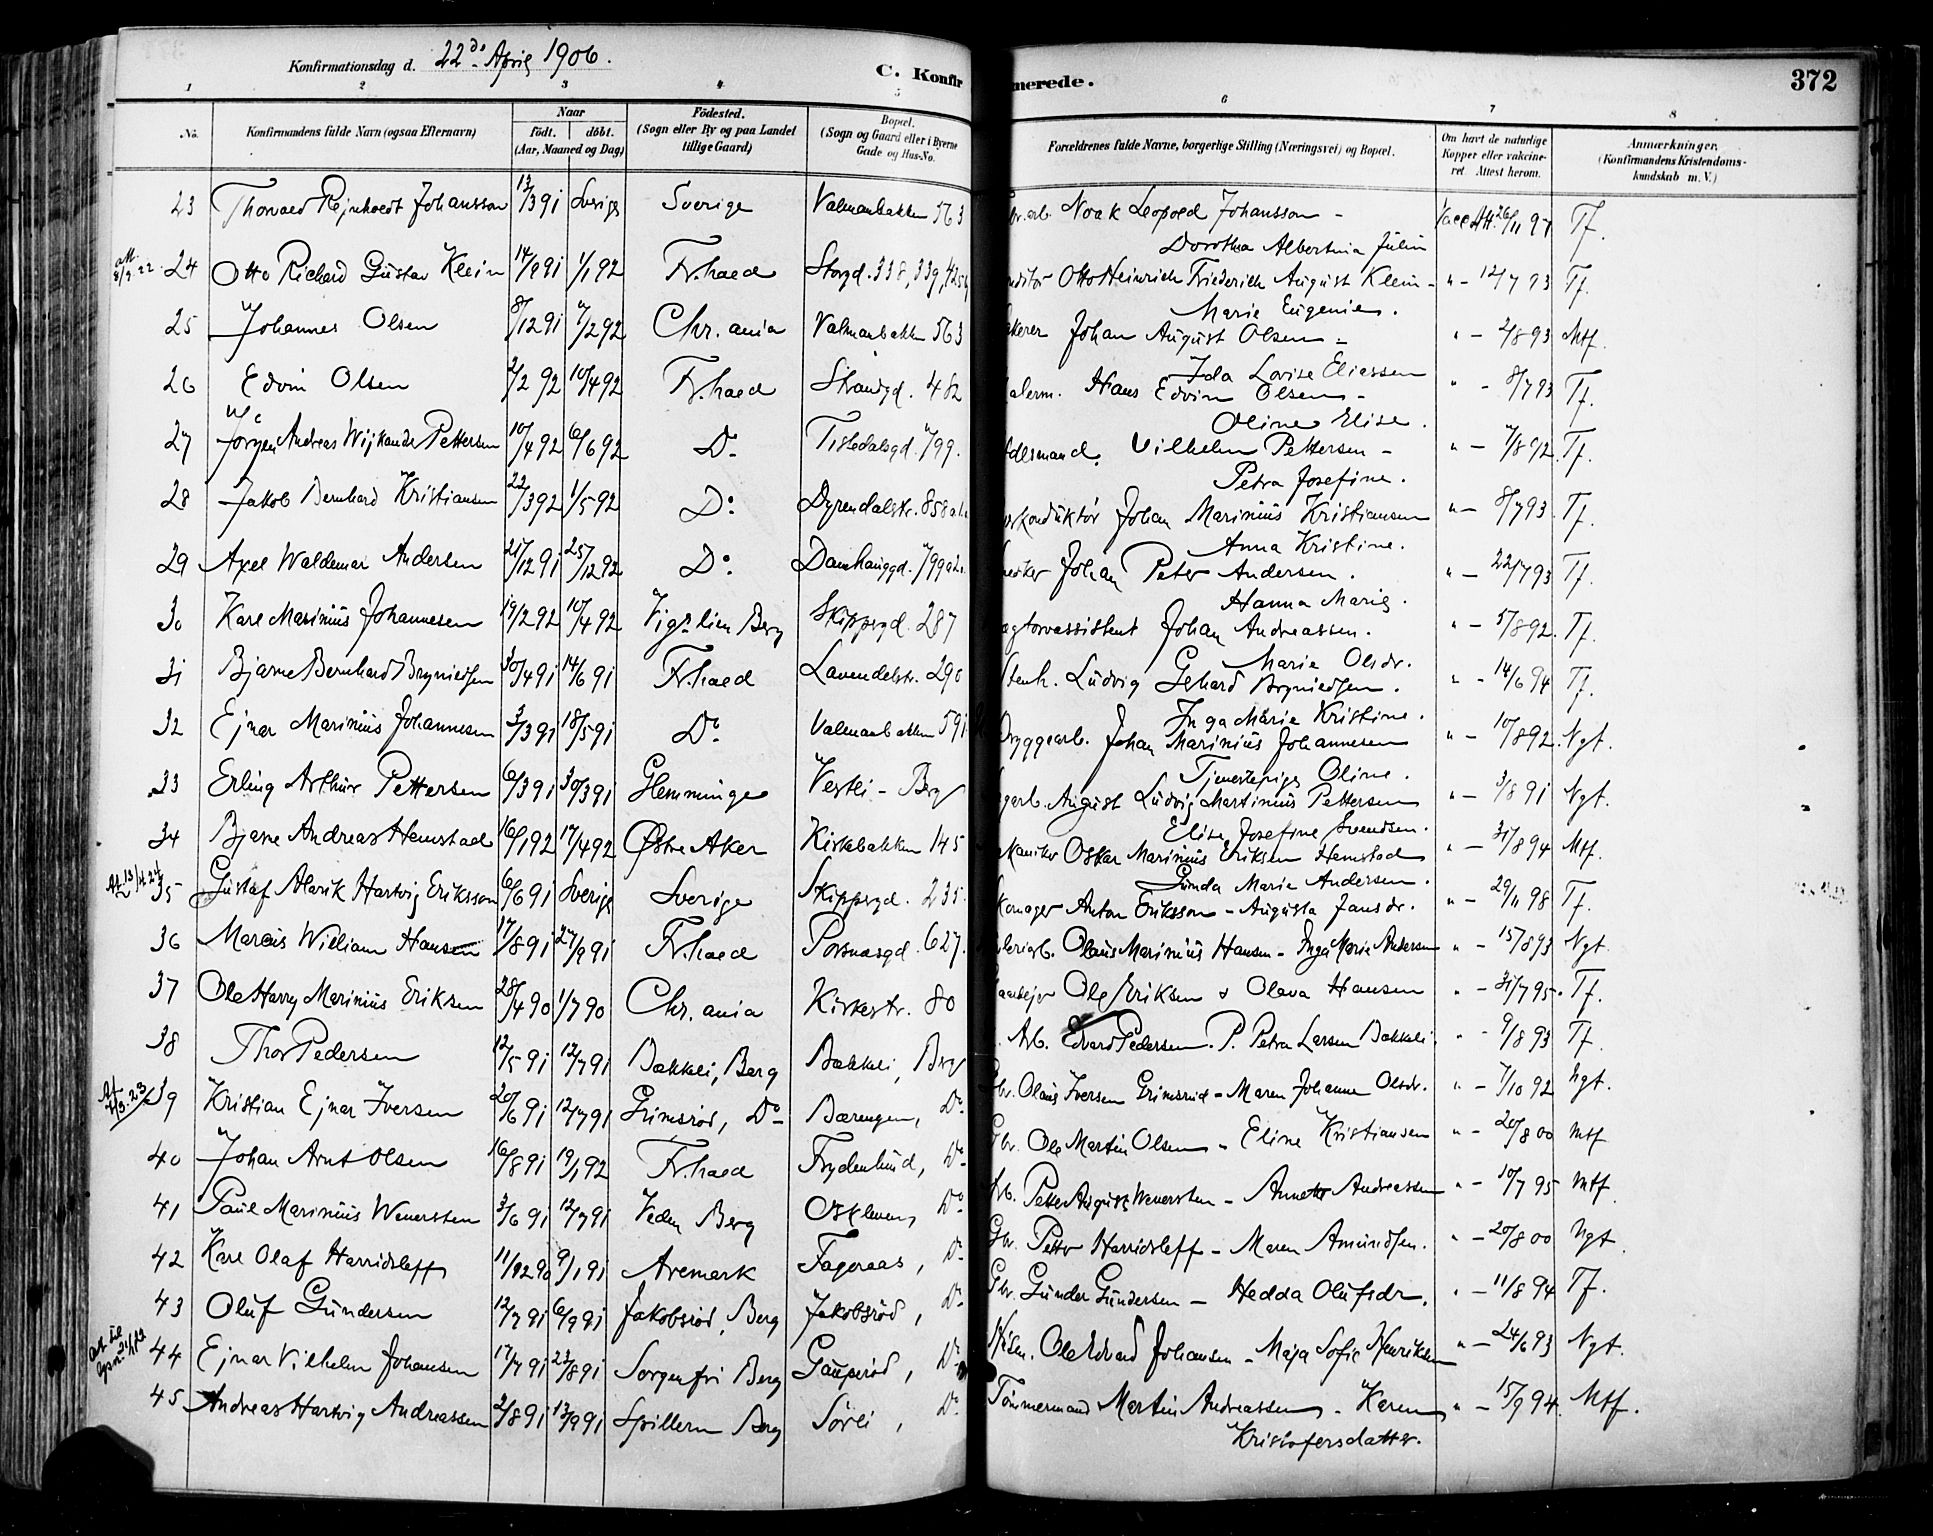 Konfirmationsdag d. 22de April 1906.
C. Konfirmerede.
372
1 2 3 4 5 6 7 8
No. Konfirmandens fulde Navn (ogsaa Efternavn) Naar født. døbt. (Aar, Maaned og Dag) Fødested. (Sogn eller By og paa Landet tillige Gaard) Bopæl. (Sogn og Gaard eller i Byerne Gade og Hus-No. Forældrenes fulde Navne, borgerlige Stilling (Næringsvei) og Bopæl. Om havt de naturlige Kopper eller vakcineret. Attest herom. Anmærkninger. (Konfirmandens Kristendomskundskab m. V.)
23 Thorvald Rejnholdt Johansson 13/3 91 Sverige Sverige Valmanbakken 563 Noak Leopold Johansson - Vacc. Att. 26/11 97 Tf.
Dorothea Albertina Julin
24 Otto Richard Gustav Klein 14/9 91 1/1 92 Fr.hald Storgd. 338, 339, Otto Heinrich Friederich August Klein - " - 12/7 93 Tf.
Marie Eugenie.
25 Johannes Olsen 8/12 91 7/2 92 Chr.ania Valmanbakken 563 Johan August Olsen - " - 2/8 93 Mtf.
Ida Lovise Eliassen
26 Edvin Olsen 2/2 92 10/4 92 Fr.hald Strandgd. 482 Hans Edvin Olsen - " - 8/7 93 Tf.
Oline Elise.
27 Jørgen Andreas Wijkande Pettersen 10/4 92 6/6 92 Do. Tistedalsgd. 799. Vilhelm Pettersen - " - 7/8 92. Tf.
Petra Josefine.
28 Jakob Bernhard Kristiansen 22/3 92 1/5 92 Do. Dyrendalstr. 858 Johan Marinius Kristiansen " - 8/7 93. Tf.
Anna Kristine.
29 Axel Waldemar Andersen 21/12 91 25/12 92 Do. Damhauggd. 799 Johan Peter Andersen. " - 22/7 93 Tf.
Hanna Marie.
30 Karl Marinius Johannesen 19/2 92 10/4 92 Berg Skippergd. 287 Johan Andreassen. " - 5/8 92. Tf.
Marie Olsdr.
31 Bjarne Bernhard Brynildsen 30/4 91 14/6 91 Fr.hald Lavendelstr. 290 Stenh. Ludvig Gehard Brynildsen. " - 14/6 94 Tf.
Inga Marie Kristine.
32 Ejnar Marinius Johannesen 3/3 91 18/5 91 Do. Valmanbakken 591 Bryggearb. Johan Marinius Johannesen " - 10/8 92. Ngt.
Tjenestepige Oline.
33 Erling Arthur Pettersen 6/3 91 30/3 91 Glemminge Vestli - Berg August Ludvig Martinius Pettersen " - 3/8 91 Ngt.
Elise Josefine Svendsen.
34 Bjarne Andreas Hemstad 16/1 92 17/4 92 Østre Aker Kirkebakken 145 Oskar Marinius Eriksen Hemstad " - 31/8 94 Mtf.
Gunda Marie Andersen.
35 Gustaf Alarik Hartvig Eriksson 6/6 91 Sverige Sverige Skippergd. 235 Anton Eriksson - Augusta Jansdr. " - 29/11 98 Tf.
36 Marius William Hansen 17/8 91 27/9 91 Fr.hald Porsnasgd. 627. Olaus Marinius Hansen - Inga Marie Andersen " - 15/8 93 Ngt.
37 Ole Harry Marinius Eriksen 28/4 90 1/7 90 Chr.ania Kirkestr. 80 Ole Eriksen & Olava Hansen " - 31/7 95. Tf.
38 Thor Pedersen 12/5 91 12/7 91 Bakkeli, Berg Bakkeli, Berg Arb. Edvard Pedersen. P. Petra Larsen Bakkeli. " - 9/8 93 Tf.
39 Kristian Ejnar Iversen 20/6 91 12/7 91 Grimsrød, Do. Bærengen, Do. Olaus Iversen Grimsrud - Maren Johanne Olsdr. " - 7/10 92 Ngt.
40 Johan Arnt Olsen 16/8 91 19/1 92 Fr.hald Frydenlund, Do. Gbr. Ole Martin Olsen - Eline Kristiansen " - 20/8 00 Mtf
41 Paul Marinius Wenersten 3/6 91 12/7 91 Veden Berg Do. Arb. Petter August Wenersten - Annette Andreassen " - 10/7 95 Mtf
42 Karl Olaf Harridsleff 11/12 90 9/1 91 Aremark Fageraas, Do. Gbr. Petter Harridsleff - Maren Amundsen. " - 20/8 00 Ngt.
43 Oluf Gundersen 12/7 91 6/9 91 Jakobsrød, Berg Jakobsrød, Do. Gbr. Gunder Gundersen - Hedda Olufsdr. " - 11/8 94 Tf.
44 Ejnar Vilhelm Johansen 17/7 91 23/8 91 Sorgenfri Berg Gauperød, Do. Ole Edvard Johansen - Maja Sofie Henriksen " - 24/6 93 Ngt.
45 Andreas Hartvig Andreassen 2/8 91 13/9 91 Spillern Berg Sørli, Do. Tømmermand Martin Andreassen - Karen " - 15/9 94. Mtf.
Kristofersdatter.